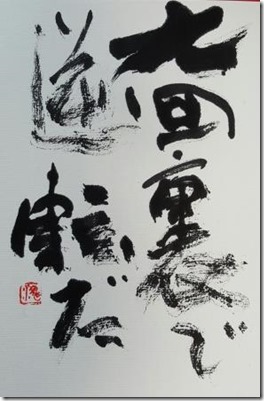 九回裏で
逆転だ